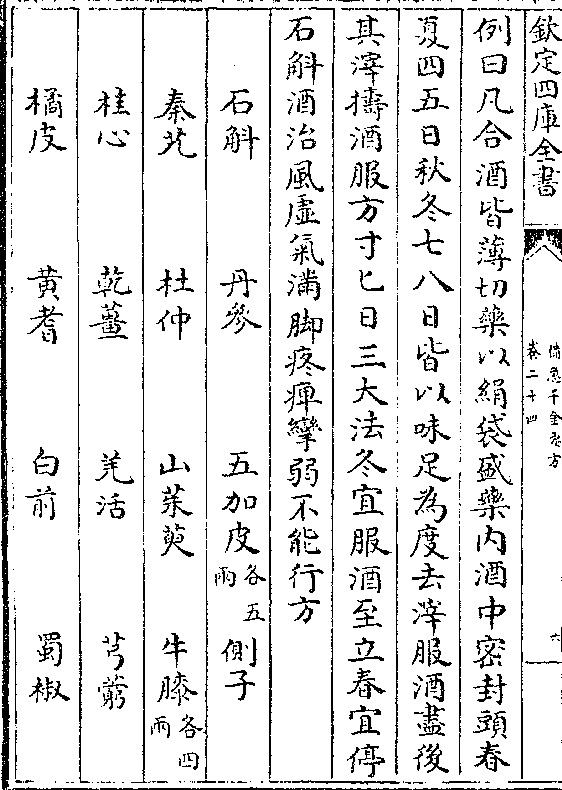 欽定四庫全書
備急千金要方
卷二十四
六
例曰凡合酒皆薄切藥以絹袋盛藥内酒中密封頭春
夏四五日秋冬七八日皆以味足為度去滓服酒盡後
其滓擣酒服方寸匕日三大法冬宜服酒至立春宜停
石斛酒治風虛氣滿脚疼痺攣弱不能行方
石斛 丹參 五加皮各五兩 側子
秦艽 杜仲 山茱萸 牛膝各四兩
桂心 乾薑 羌活 芎藭
橘皮 黃耆 白前 蜀椒